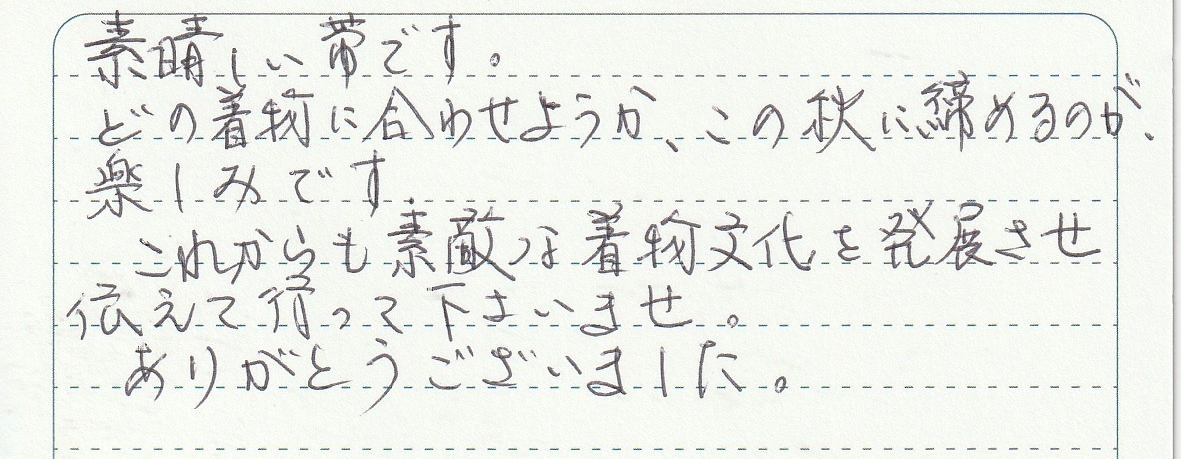 素晴しい帯です。
どの着物に合わせようか、この秋に締めるのが、
楽しみです.
これからも素敵な着物文化を発展させ
伝えて行って下さいませ。
ありがとうございました。